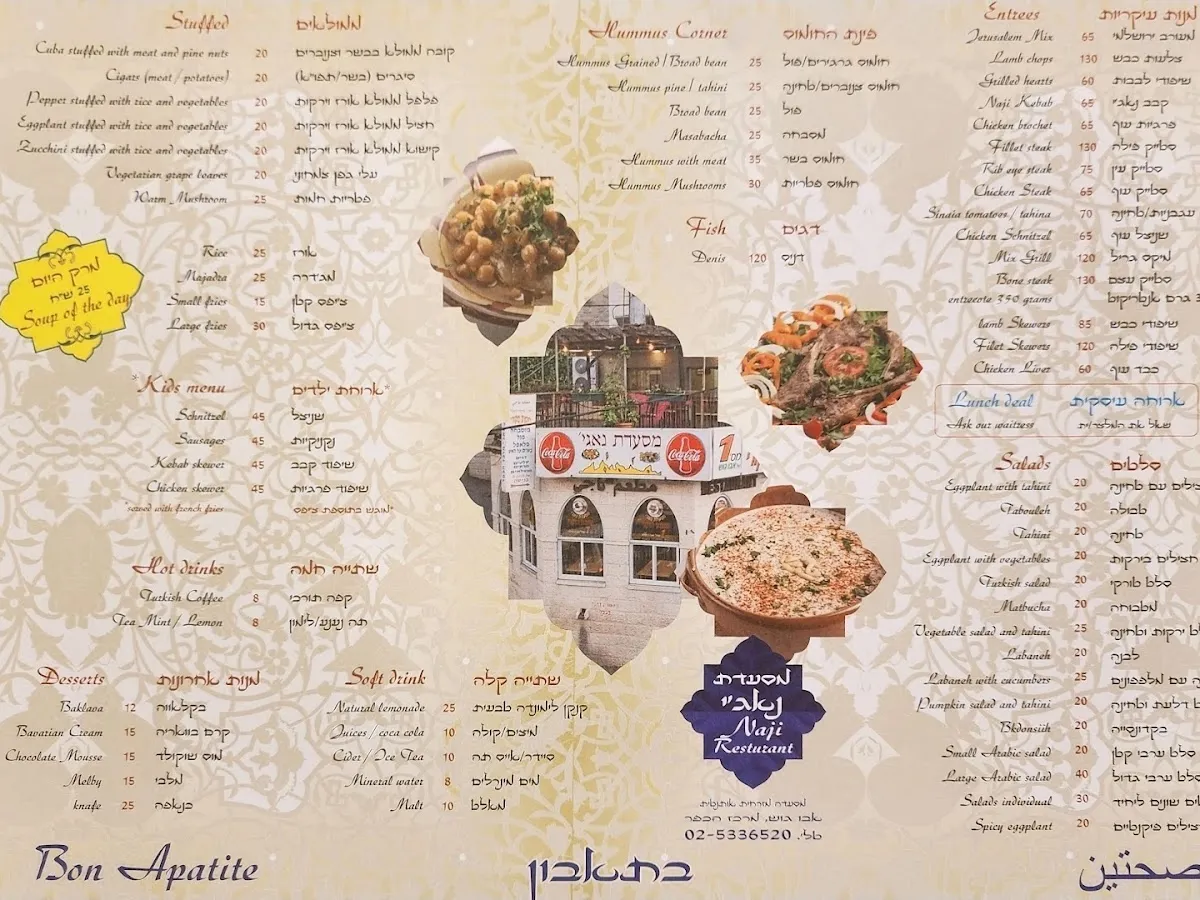 Stuffed ממולאים
Cuba stuffed with meat and pine nuts 20 קובה ממולא בבשר וצנוברים
Cigars (meat / potatoes) 20 סיגרים (בשר/תפו״א)
Pepper stuffed with rice and vegetables 20 פלפל ממולא אורז וירקות
Eggplant stuffed with rice and vegetables 20 חציל ממולא אורז וירקות
Zucchini stuffed with rice and vegetables 20 קישוא ממולא אורז וירקות
Vegetarian grape leaves 20 עלי גפן צמחוני
Warm Mushroom 25 פטריות חמות
Rice 25 אורז
Majadra 25 מג'דרה
Small fries 15 ציפס קטן
Large fries 30 ציפס גדול
מרק היום
25 ש״ח
Soup of the day
*Kids menu ארוחת ילדים*
Schnitzel 45 שניצל
Sausages 45 נקניקיות
Kebab skewer 45 שיפוד קבב
Chicken skewer 45 שיפוד פרגיות
*served with french fries מוגש בתוספת ציפס*
Hot drinks שתייה חמה
Turkish Coffee 8 קפה תורכי
Tea Mint / Lemon 8 תה נענע/לימון
Desserts מנות אחרונות
Baklava 12 בקלאווה
Bavarian Cream 15 קרם בוואריה
Chocolate Mousse 15 מוס שוקולד
Melby 15 מלבי
knafe 25 כנאפה
Soft drink שתייה קלה
Natural lemonade 25 קנקן לימונדה טבעית
Juices / coca cola 10 מיצים/קולה
Cider/Ice Tea 10 סיידר/אייס תה
Mineral water 8 מים מינרלים
Malt 10 מאלט
Hummus Corner פינת החומוס
Hummus Grained / Broad bean 25 חומוס גרגירים/פול
Hummus pine / tahini 25 חומוס צנוברים/טחינה
Broad bean 25 פול
Masabacha 25 מסבחה
Hummus with meat 35 חומוס בשר
Hummus Mushrooms 30 חומוס פטריות
Fish דגים
Denis 120 דניס
מסעדת נאג'י
Coca-Cola
Coca-Cola
1
مطعم ناجي
מסעדת
נאג'י
Naji
Resturant
מסעדה מזרחית אותנטית
אבו גוש, מרכז הכפר
טל. 02-5336520
Entrees מנות עיקריות
Jerusalem Mix 65 מעורב ירושלמי
Lamb chops 130 צלעות כבש
Grilled hearts 60 שיפודי לבבות
Naji Kebab 65 קבב נאג'י
Chicken brochet 65 פרגיות עוף
Fillet steak 130 סטייק פילה
Rib eye steak 75 סטייק עין
Chicken Steak 65 סטייק עוף
Sinaia tomatoes / tahina 70 עגבניות/טחינה
Chicken Schnitzel 65 שניצל עוף
Mix Grill 120 מיקס גריל
Bone steak 130 סטייק עצם
entrecote 350 grams גרם אנטריקוט
lamb Skewers 85 שיפודי כבש
Filet Skewers 120 שיפודי פילה
Chicken Liver 60 כבד עוף
Lunch deal ארוחה עיסקית
Ask our waitress שאל את המלצר/ית
Salads סלטים
Eggplant with tahini 20 עם טחינה
Tabouleh 20 טבולה
Tahini 20 טחינה
Eggplant with vegetables 20 חצילים בירקות
Turkish salad 20 סלט טורקי
Matbucha 20 מטבוחה
Vegetable salad and tahini 25 ירקות וטחינה
Labaneh 20 לבנה
Labaneh with cucumbers 25 עם מלפפונים
Pumpkin salad and tahini 20 דלעת וטחינה
Bkdonsiih 20 בקדונסייה
Small Arabic salad 20 סלט ערבי קטן
Large Arabic salad 40 סלט ערבי גדול
Salads individual 30 שונים ליחיד
Spicy eggplant 20 פיקנטיים
Bon Apatite בתאבון صحتين